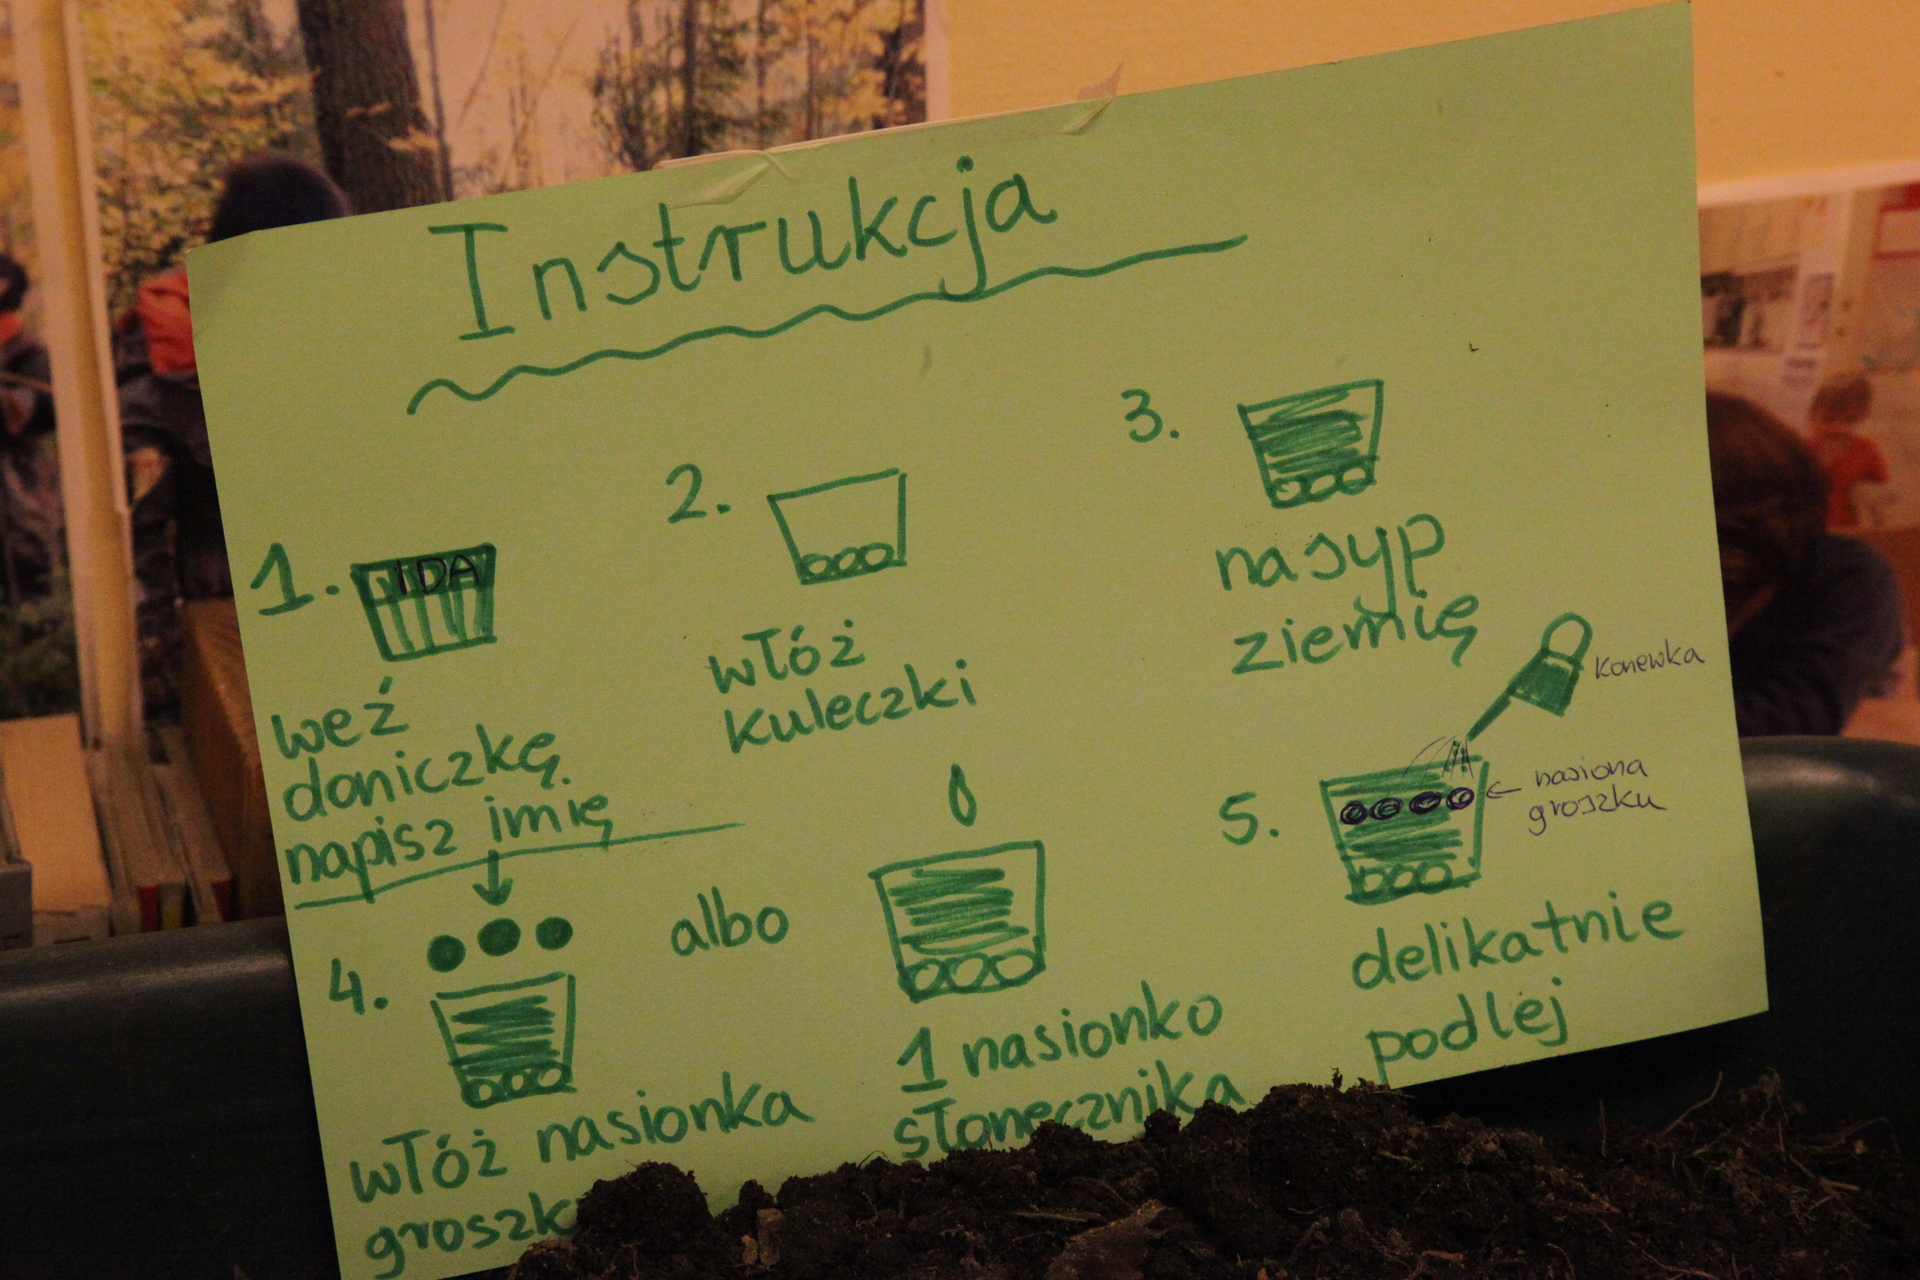 Instrukcja
1.
IDA
weź
doniczkę.
napisz imię
2.
włóż
kuleczki
3.
nasyp
ziemię
4.
włóż nasionka
albo
1 nasionko
słonecznika
5.
konewka
nasiona
groszku
delikatnie
podlej